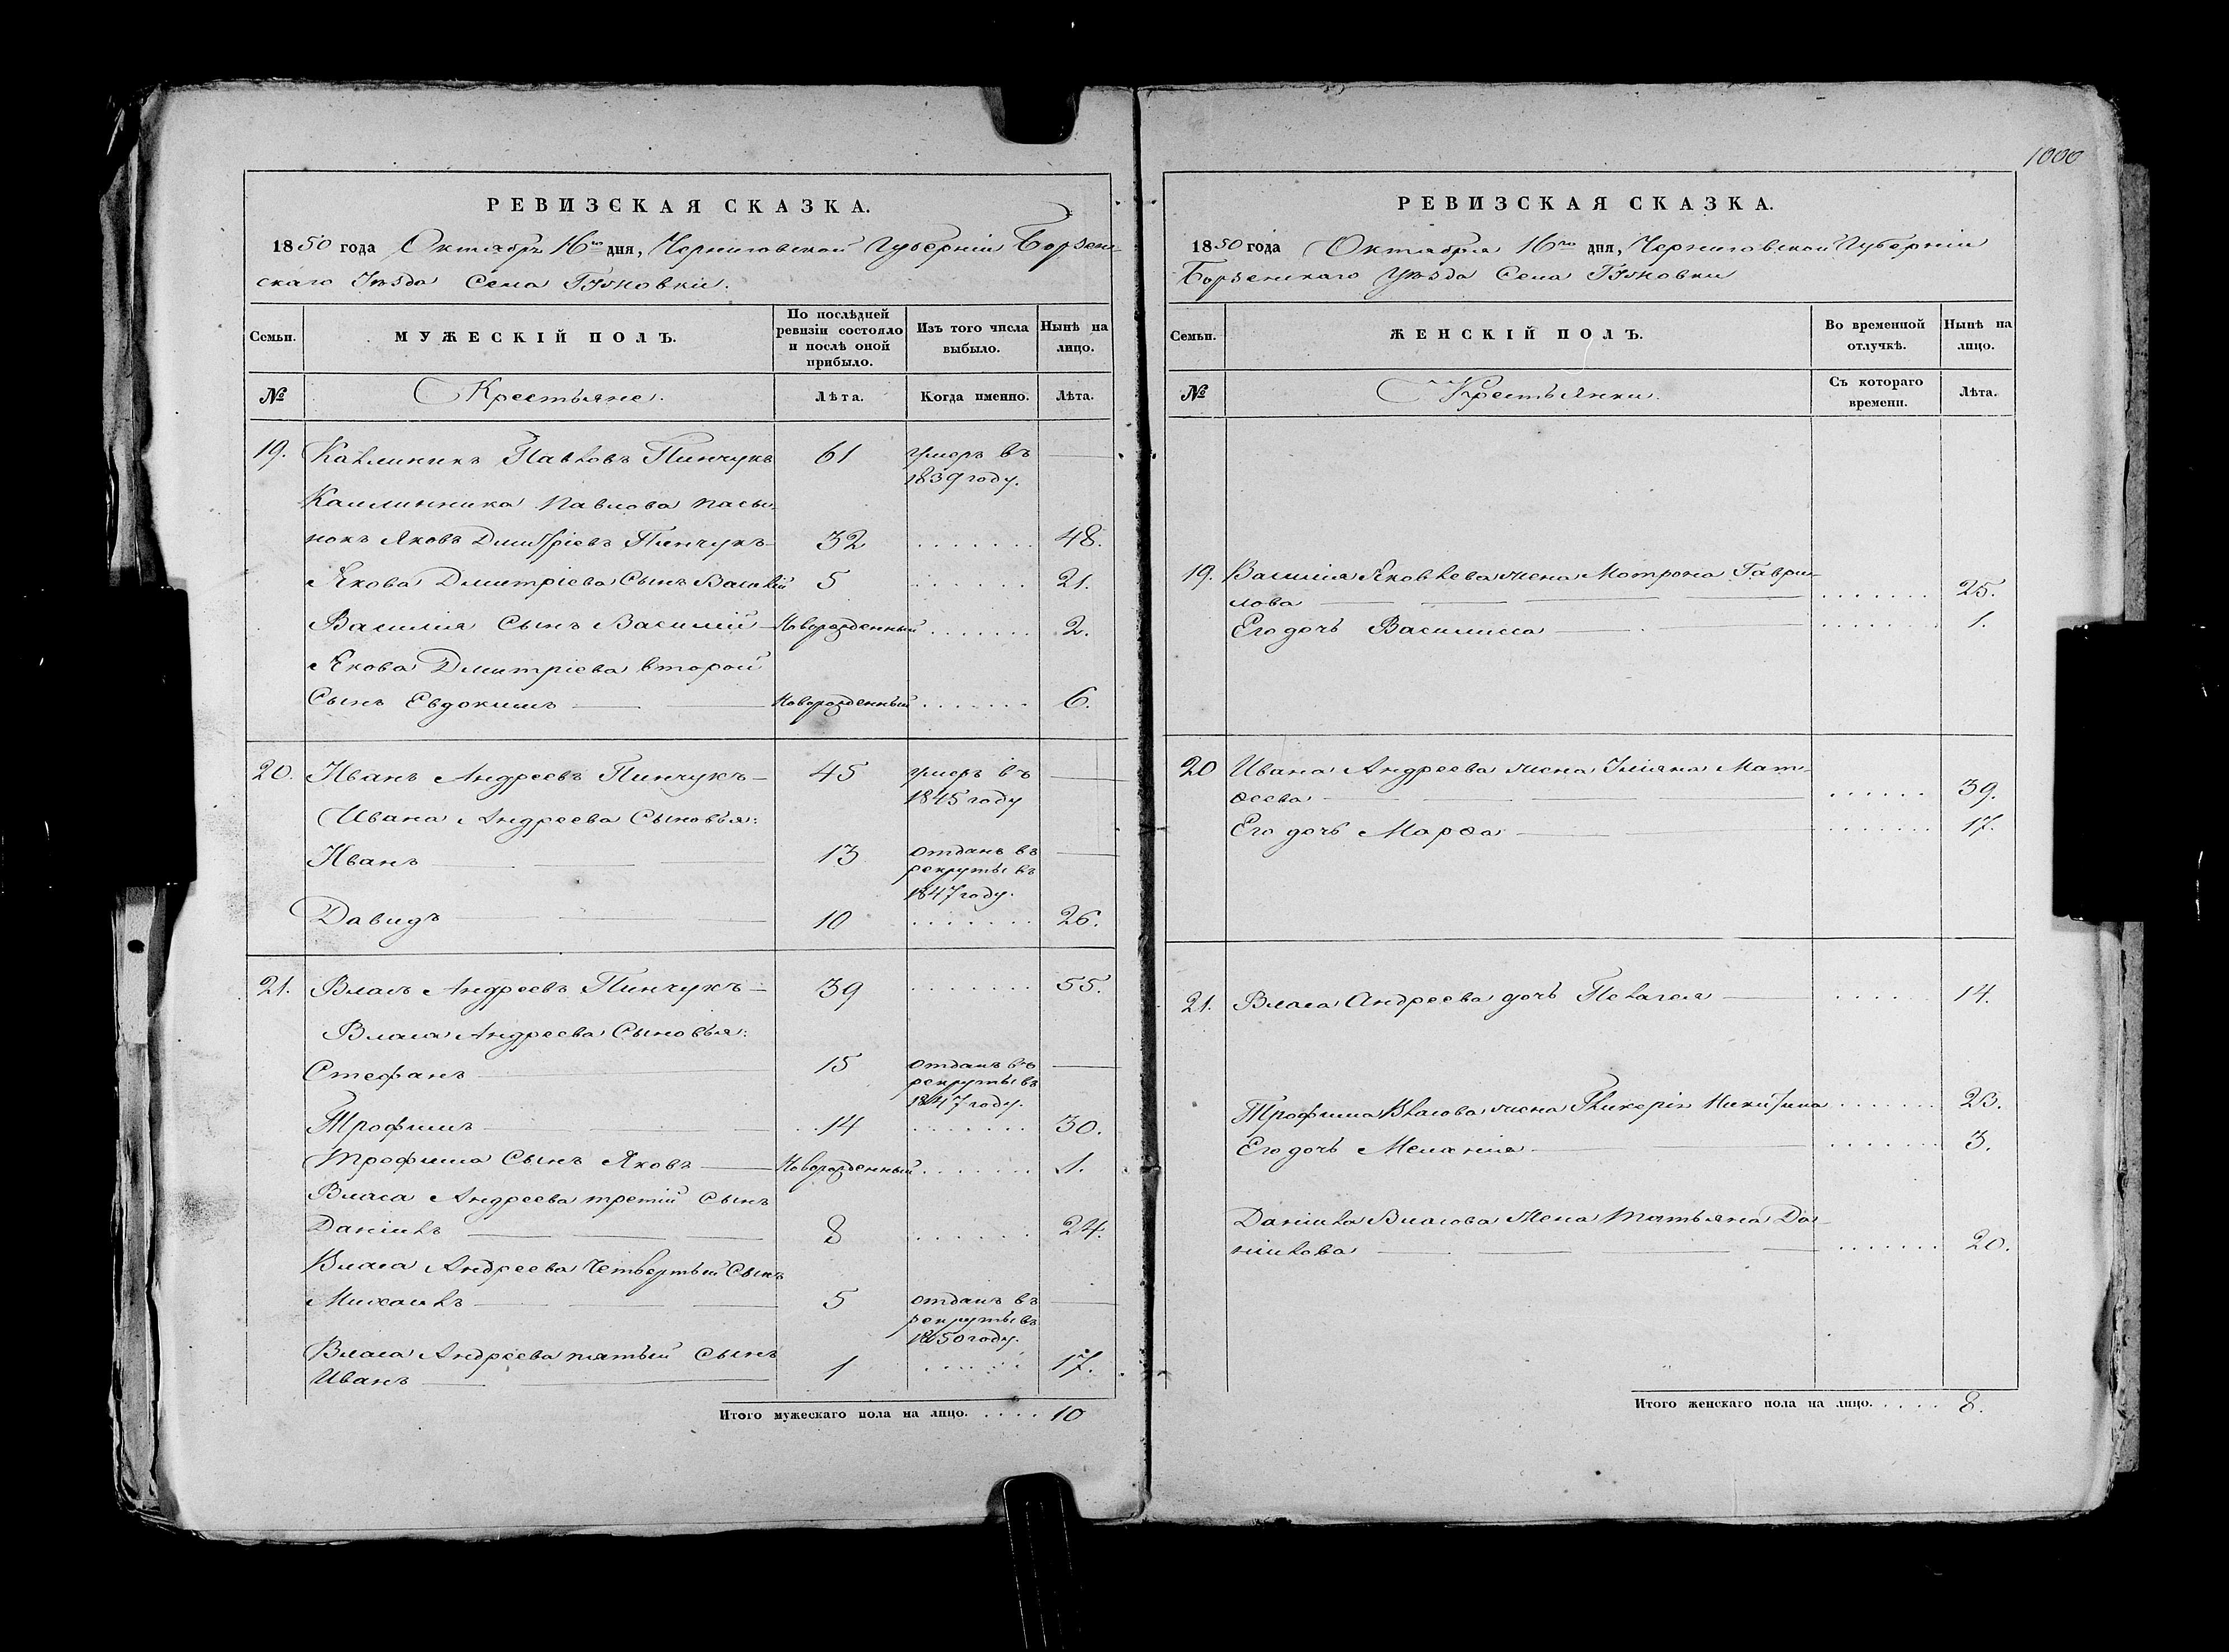 1000
РЕВИЗСКАЯ СКАЗКА.
1850 года Октября 16го дня, Черниговской Губерніи Борзен-
скаго Уѣзда Села
Семьи.
МУЖЕСКІЙ ПОЛЪ.
По послѣдней ревизіи состояло и послѣ оной прибыло.
Изъ того числа выбыло.
Нынѣ на лицо.
№
Крестьяне.
Лѣта.
Когда именно.
Лѣта.
19. Каклиникъ Павловъ Пинчукъ 61 умеръ въ
1839 году.
Каллиника Павлова пасы-
нокъ Яковъ Дмитріевъ Пинчукъ 32 48.
Якова Дмитріева Сынъ Василій 5 21.
Василія Сынъ Василій Новорожденный 2.
Якова Дмитріева второй
Сынъ Евдокимъ Новорожденный 6.
20. Иванъ Андреевъ Пинчукъ 45 умеръ въ
1845 году
Ивана Андреева Сыновья:
Иванъ 13 отданъ въ
рекруты въ
1847 году.
Давидъ 10 26.
21. Власъ Андреевъ Пинчукъ 39 55.
Власа Андреева Сыновья:
Стефанъ 15 отданъ въ
рекруты въ
1847 году.
Трофимъ 14 30.
Трофима Сынъ Яковъ Новорожденный 1.
Власа Андреева третій Сынъ
Даніилъ 8 24.
Власа Андреева Четвертый Сынъ
Михаилъ 5 отданъ въ
рекруты въ
1850 году.
Власа Андреева пятый Сынъ
Иванъ 1 17.
Итого мужескаго пола на лицо. . . . . 10
РЕВИЗСКАЯ СКАЗКА.
1850 года Октября 16го дня, Черниговской Губерніи
Борзенскаго Уѣзда Села
Семьи.
ЖЕНСКІЙ ПОЛЪ.
Во временной отлучкѣ.
Нынѣ на лицо.
№
Крестьянки.
Съ котораго времени.
Лѣта.
19. Василія Яковлева жена Мотрона Гаври-
лова 25.
Его дочь Василиса 1.
20 Ивана Андреева жена Уліяна Мат-
ѳеева 39.
Его дочь Марѳа 17.
21. Власа Андреева дочь Пелагея 14.
Трофима Власова жена Гликерія Никитина 23.
Его дочь Меланія 3.
Даніила Власова Жена Татьяна Да-
ніилова 20.
Итого женскаго пола на лицо. . . . . 8.